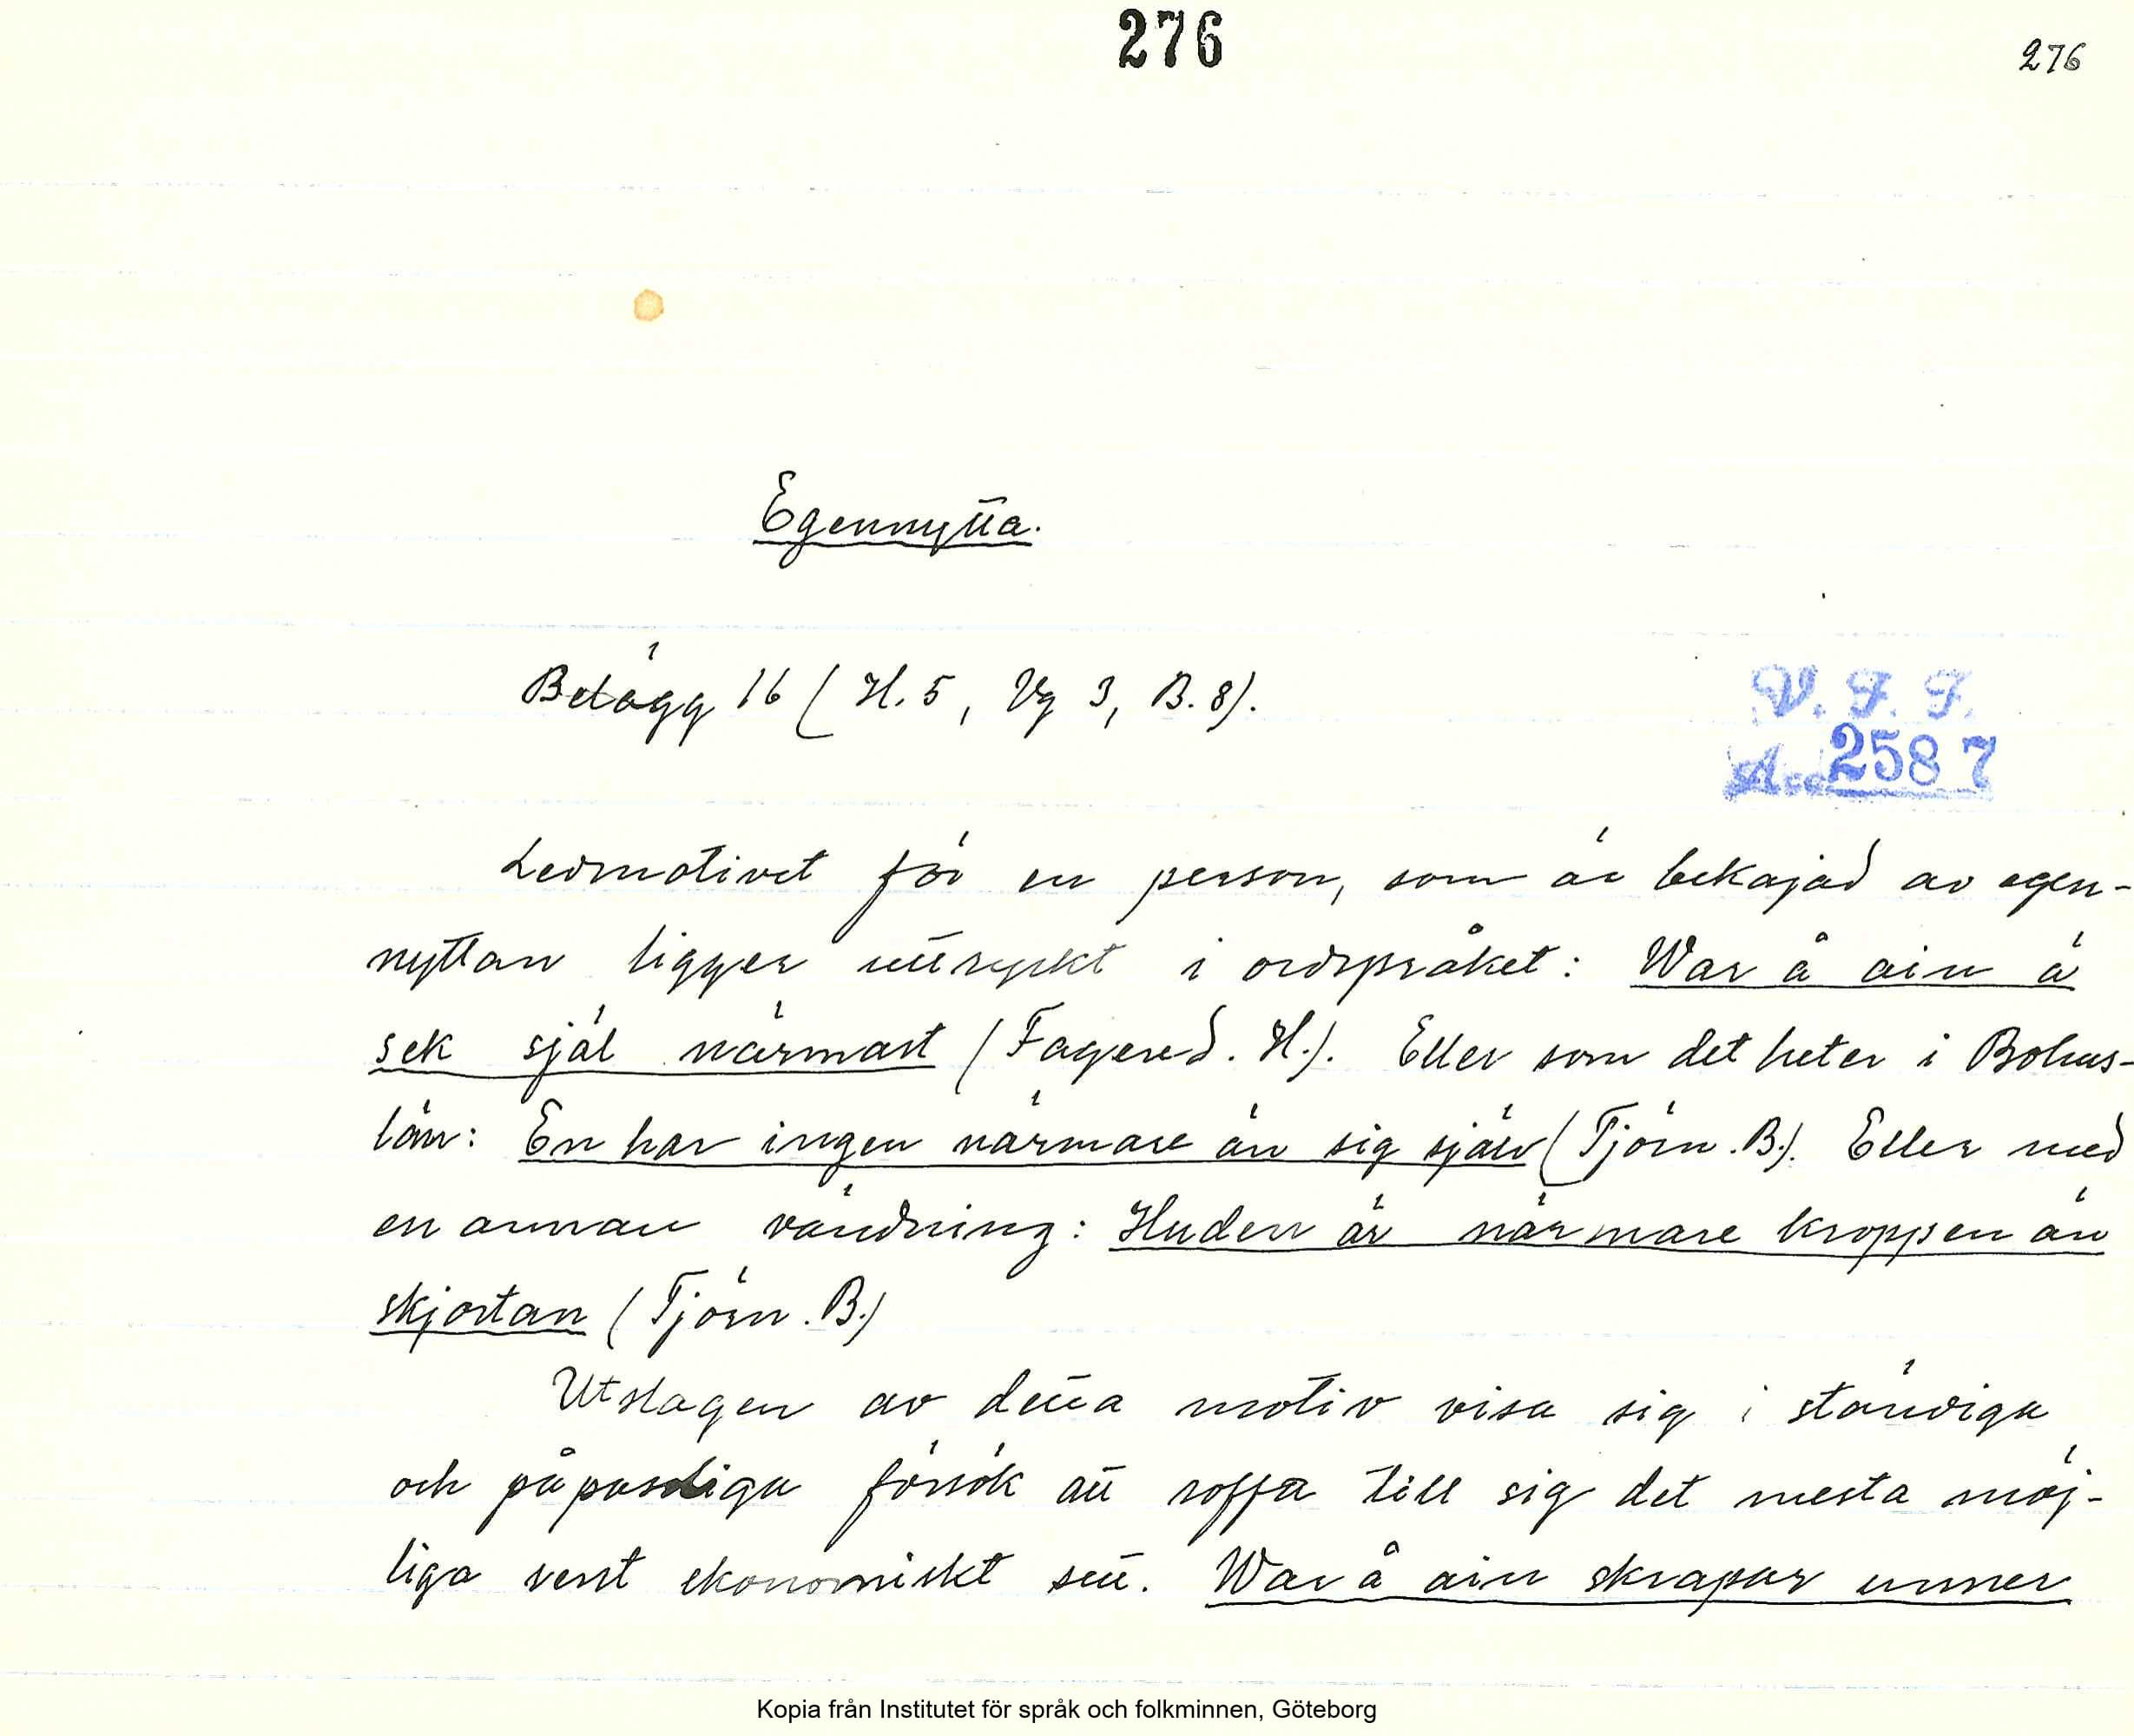 276
276
Egennytta.
Belägg 16 (H. 5, Vg 3, B. 8).
V. F. F.
Acc 2587
Ledmotivet för en person, som är bekajad av egen-
nyttan ligger uttryckt i ordspråket: War å ain ä
sek själ närmast (Fagered. H.). Eller som det heter i Bohus-
län: En har ingen närmare än sig själv (Tjörn. B.). Eller med
en annan vändning: Huden är närmare kroppen än
skjortan (Tjörn. B.)
Utslagen av detta motiv visa sig i ständiga
och påpassliga försök att roffa till sig det mesta möj-
liga rent ekonomiskt sett. War å ain skrapar unner
Kopia från Institutet för språk och folkminnen, Göteborg